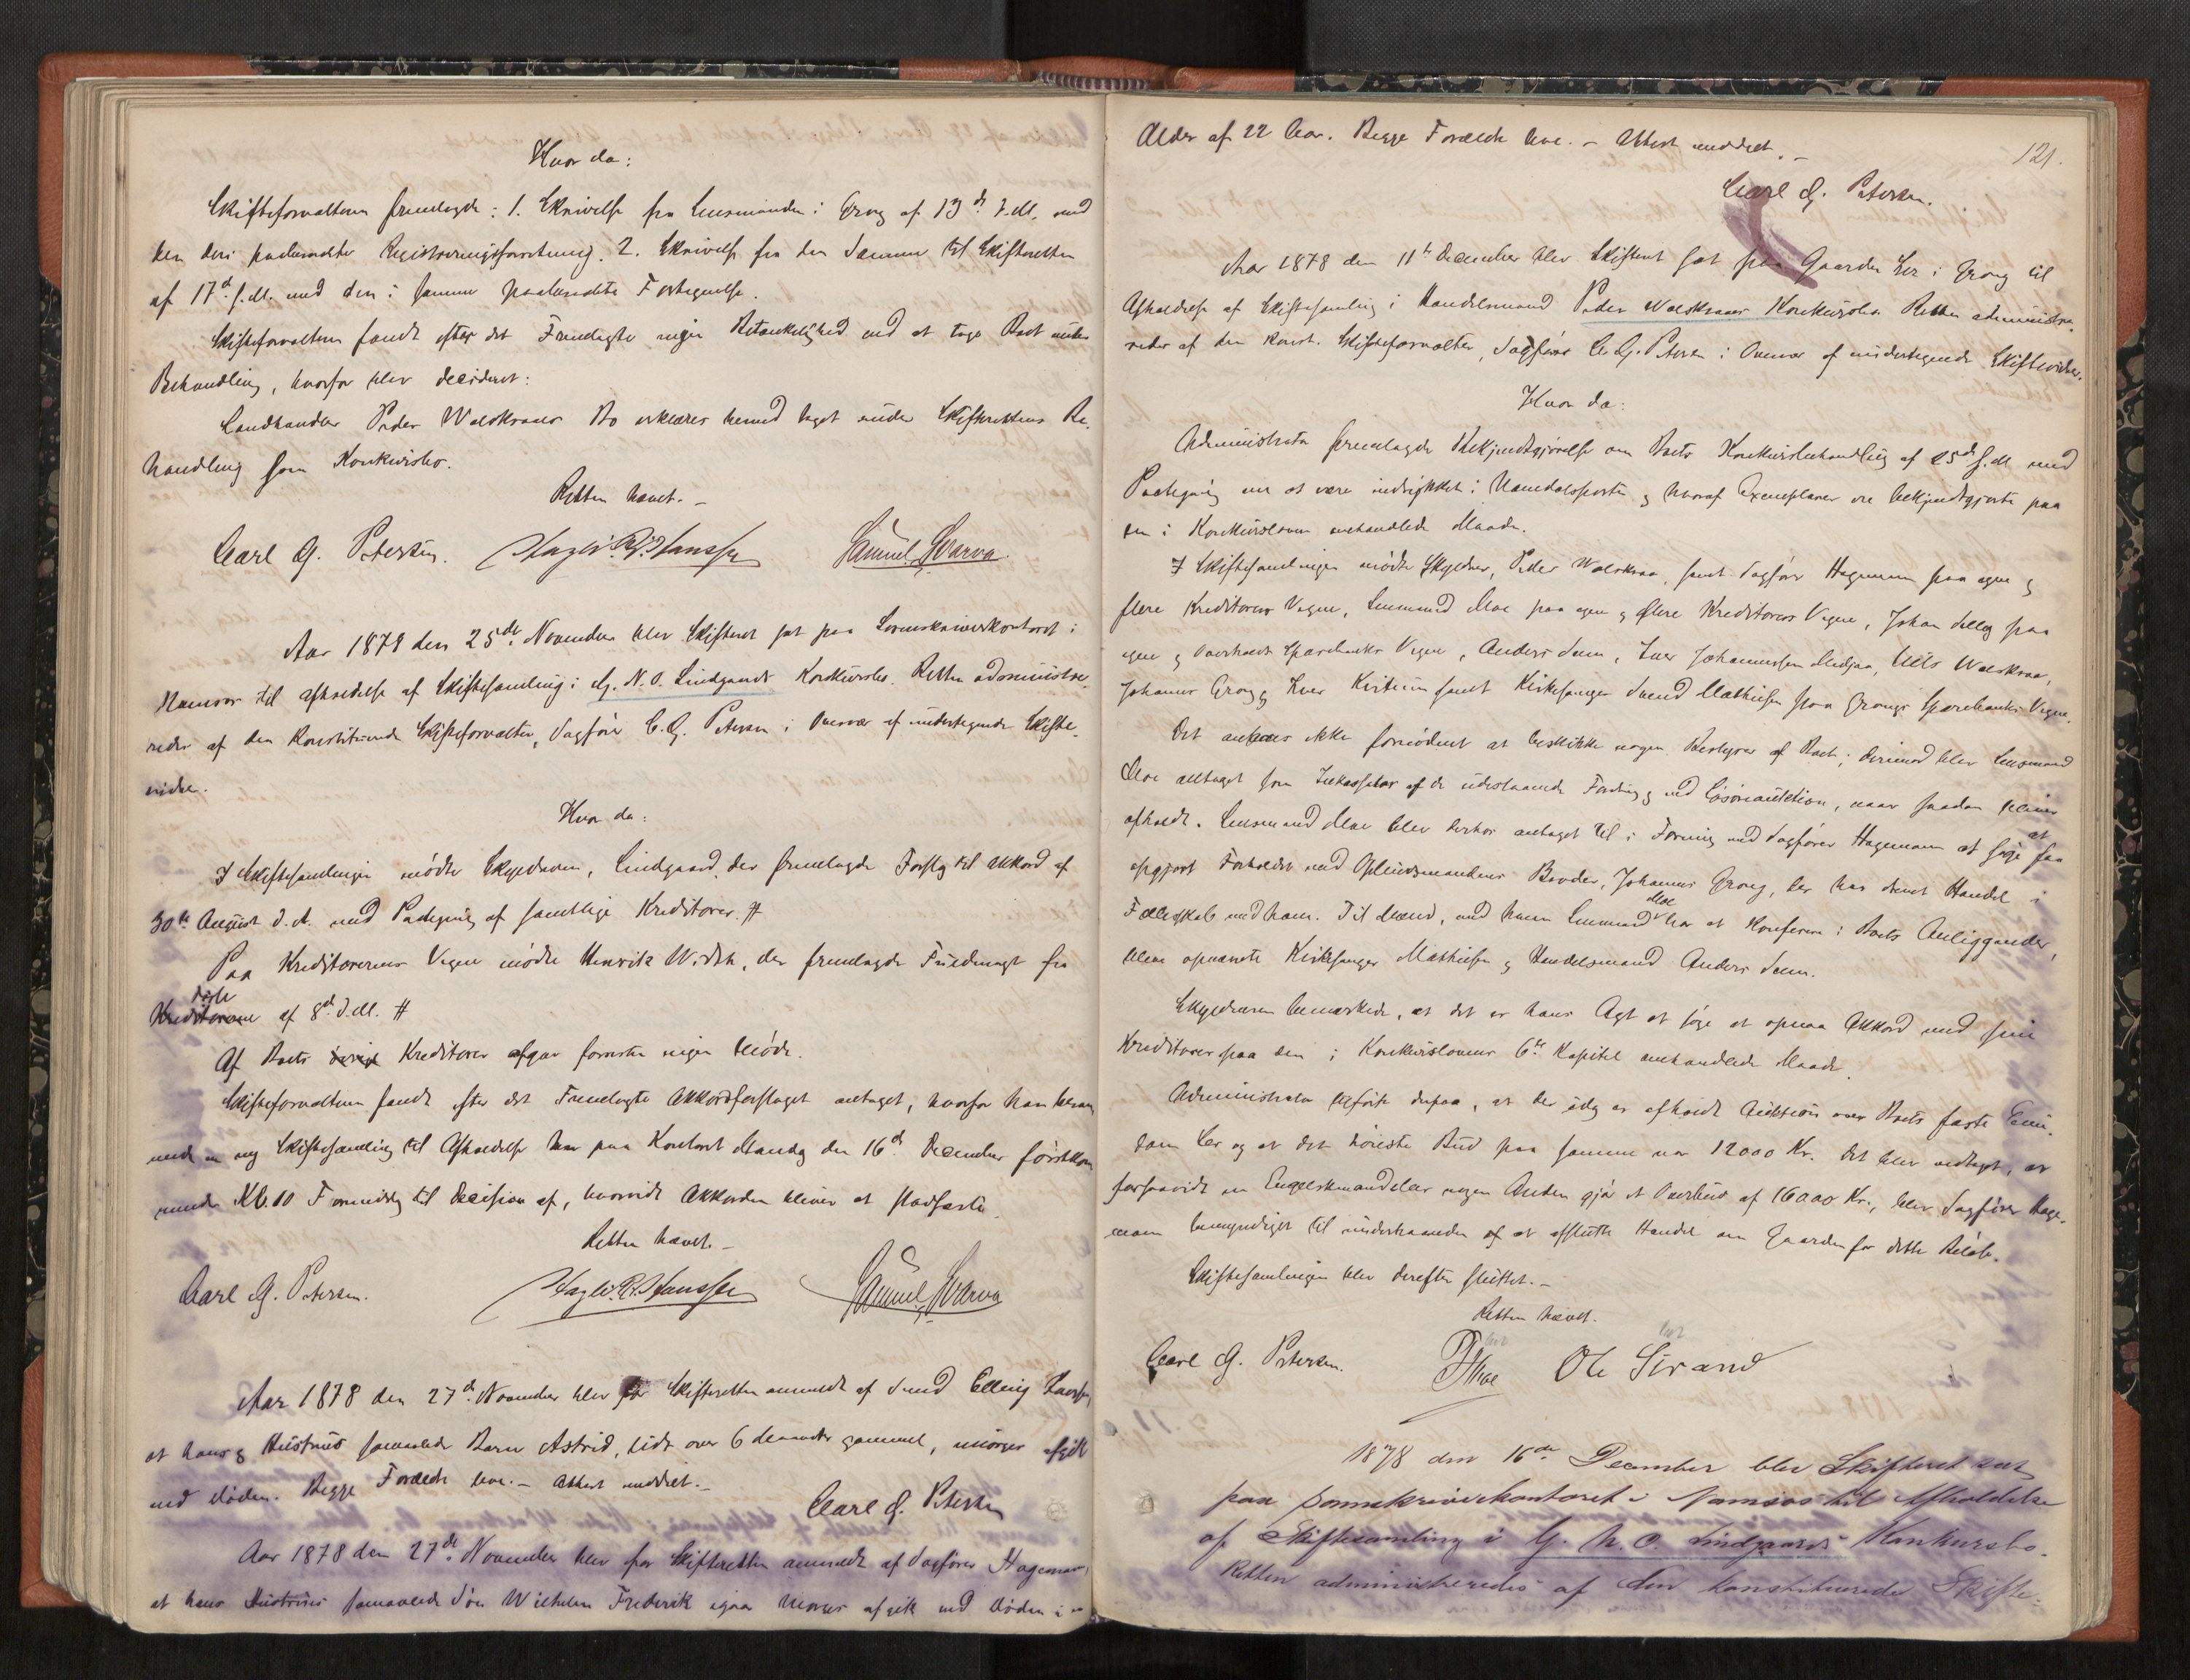 Hvor da:
Skifteforvalteren fremlagde: 1. Skrivelse fra Lensmanden i Grong af 13de f.M. med
den deri paaberaabte Registreringsforretning. 2. Skrivelse fra den Samme til Skifteretten
af 17de f.M. med den i samme paaberaabte Fortegnelse.
Skifteforvalteren fandt efter det Fremlagte ingen Betænkelighed ved at tage Boet under
Behandling, hvorfor blev decideret:
Landhandler Peder Walskraas Bo erklæres herved taget under Skifterettens Be-
handling som Konkursbo.
Retten hævet. –
Carl G. Petersen. Samuel Svarva
Aar 1878 den 25de November blev Skifteret sat paa Sorenskriverkontoret i
Namsos til Afholdelse af Skiftesamling i G. N. O. Lindgaards Konkursbo. Retten administre-
redes af den konstituerede Skifteforvalter, Sagfører C. G. Petersen i Overvær af undertegnede Skifte-
vidner.
Hvor da:
I Skiftesamlingen mødte Skyldneren, Lindgaard, der fremlagde Forslag til Akkord af
30te August d.A. med Paategning af samtlige Kreditorer. #
Paa Kreditorernes Vegne mødte Henrik, der fremlagde Fuldmagt fra
Kreditorerne af 8de d.M. #
Af Boets øvrige Kreditorer afgav forresten ingen Møde.
Skifteforvalteren fandt efter det Fremlagte Akkordforslaget antaget, hvorfor han beram-
mede en ny Skiftesamling til Afholdelse her paa Kontoret Mandag den 16de December førstkom-
mende Kl. 10 Formiddag til Decision af, hvorvidt Akkorden bliver at stadfæste.
Retten hævet. –
Carl G. Petersen. Samuel Svarva
Aar 1878 den 27de November blev for Skifteretten anmeldt af Elling
at hans og Hustrus sammenavlede Barn Astrid, lidt over 6 Maaneder gammel, imorges afgik
ved Døden. Begge Forældre leve. – Attest meddelt. –
Carl G. Petersen
Aar 1878 den 27de November blev for Skifteretten anmeldt af Sagfører Hagemann,
at hans Hustrus sammenavlede Søn Wilhelm Frederik igaar Morges afgik ved Døden i en
Alder af 22 Aar. Begge Forældre leve. – Attest meddelt. –
121.
Carl G. Petersen.
Aar 1878 den 11te December blev Skifteret sat paa Gaarden Ler i Grong til
Afholdelse af Skiftesamling i Handelsmand Peder Walskraas Konkursbo. Retten administre-
redes af den konst. Skifteforvalter, Sagfører C. G. Petersen i Overvær af undertegnede Skiftevidner.
Hvor da:
Administrator fremlagde Bekjendtgjørelse om Boets Konkursbehandling af 25de f.M. med
Paategning om at være indrykket i Namdalsposten og hvoraf Exemplarer ere bekjendtgjorte paa
den i Konkursloven omhandlede Maade.
I Skiftesamlingen mødte Skyldner, Peder Walskraa, samt Sagfører Hagemann paa egne og
flere Kreditorers Vegne, Lensmand Moe paa egne og flere Kreditorers Vegne, Johan Selleg paa
egne og Overhalds Sparebanks Vegne, Anders Sem, Iver Johannessen, Nils Walskraa,
Johannes Grong, Iver samt Kirkesanger Svend Mathiesen paa Grongs Sparebanks Vegne.
Det ansaaes ikke fornødent at beskikke nogen Bestyrer af Boet; derimod blev Lensmand
Moe antaget som Inkassator af de udestaaende Fordringer og ved Løsøreauktion, naar saadan bliver
afholdt. Lensmand Moe blev derhos antaget til i Forening med Sagfører Hagemann at søge at faa
opgjort Forholdet med Opsidsmandens Broder, Johannes Grong, der har drevet Handel i
Fællesskab med ham. Til Mænd, med hvem Lensmand Moe har at konferere i Boets Anliggender,
bleve opnævnte Kirkesanger Mathiesen og Handelsmand Anders Sem.
Skyldneren bemærkede, at det er hans Agt at søge at opnaa Akkord med sine
Kreditorer paa den i Konkurslovens 6te Kapitel omhandlede Maade.
Administrator oplyste derpaa, at der idag er afholdt Auktion over Boets faste Eien-
dom Ler og at det høieste Bud paa samme var 12000 Kr. Det blev vedtaget, at
forsaavidt en Engelskmand eller nogen Anden gjør et Overbud af 16000 Kr., blev Sagfører Hage-
mann bemyndiget til underhaanden at afslutte Handel om Gaarden for dette Beløb.
Skiftesamlingen blev derefter sluttet. –
Retten hævet.
Carl G. Petersen. Moe Ole Strand
1878 den 16de December blev Skifteret sat
paa Sorenskriverkontoret i Namsos til Afholdelse
af Skiftesamling i G. N. O. Lindgaards Konkursbo.
Retten administreredes af den konstituerede Skifte-